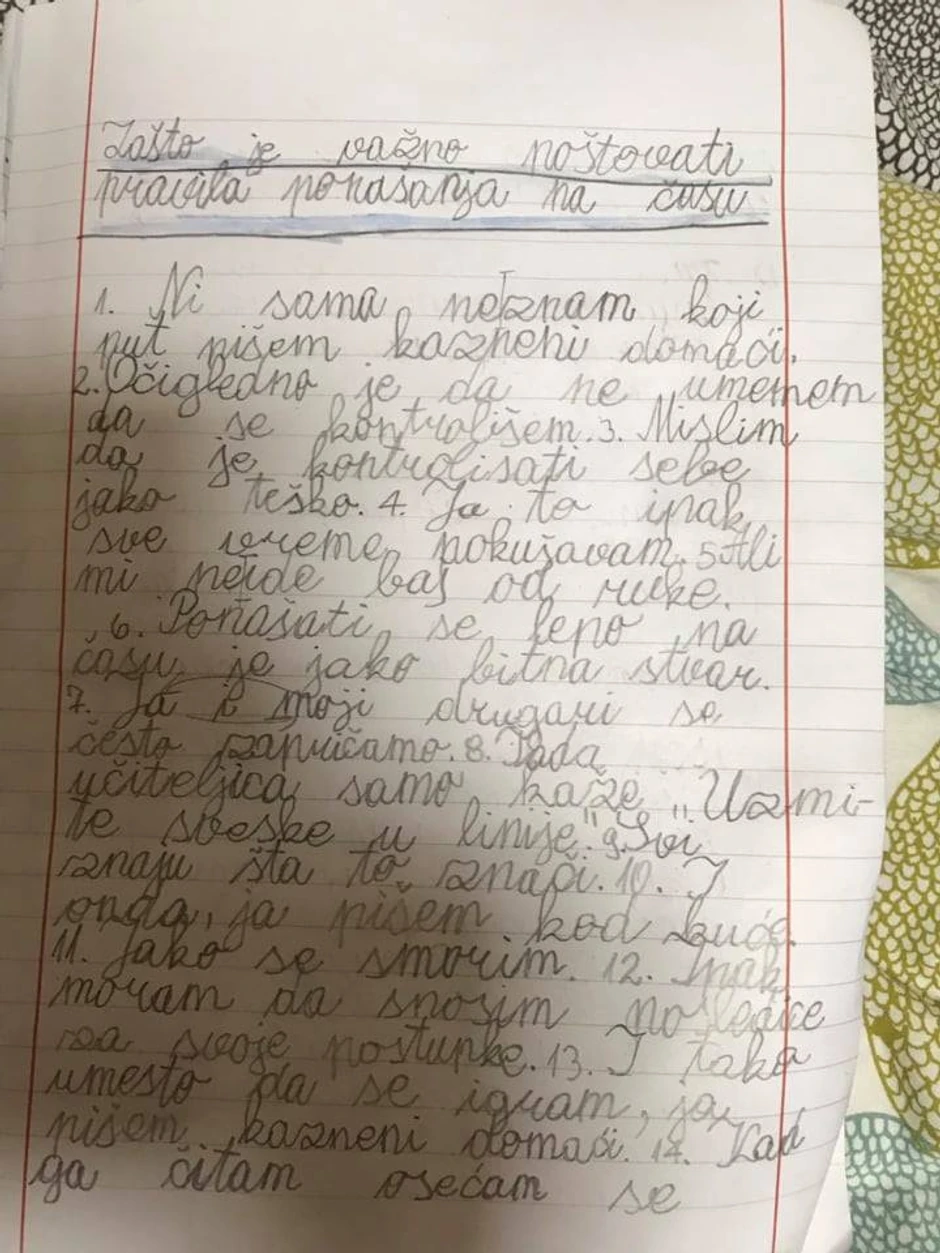 Zašto je važno poštovati
pravila ponašanja na času
1. Ni sama neznam koji
put pišem kazneni domaći.
2. Očigledno je da ne umemem
da se kontrolišem. 3. Mislim
da je kontrolisati sebe
jako teško. 4. Ja to ipak
sve vreme pokušavam. 5 Ali
mi neide baš od ruke.
6. Ponašati se lepo na
času je jako bitna stvar.
7. Ja i moji drugari se
često zapričamo. 8. Tada
učiteljica samo kaže „Uzmi-
te sveske u linije". 9. Svi
znaju šta to znači. 10. I
onda, ja pišem kod kuće.
11. Jako se smorim. 12. Ipak
moram da snosim posledice
za svoje postupke. 13. I tako
umesto da se igram, ja
pišem kazneni domaći. 14. Kad
ga čitam osećam se